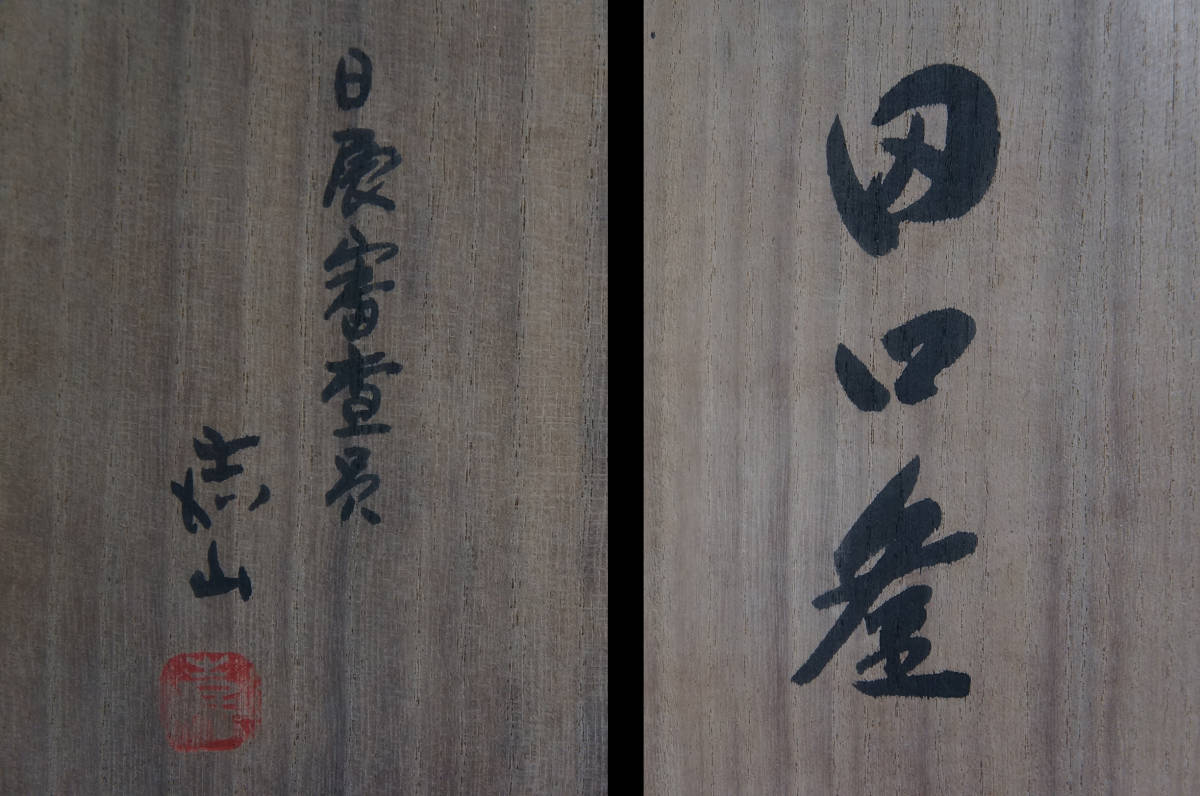 日展審査員
山
田口